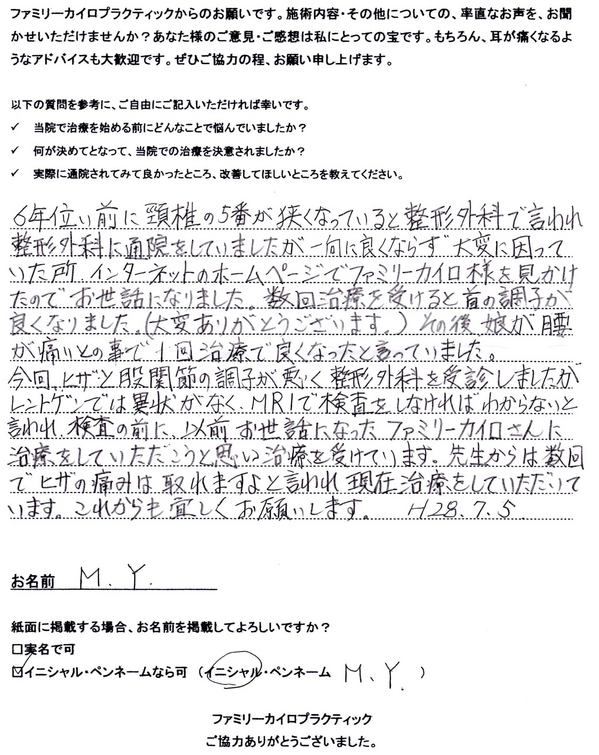 ファミリーカイロプラクティックからのお願いです。施術内容・その他についての、率直なお声を、お聞
かせいただけませんか？あなた様のご意見・ご感想は私にとっての宝です。もちろん、耳が痛くなるよ
うなアドバイスも大歓迎です。ぜひご協力の程、お願い申し上げます。
以下の質問を参考に、ご自由にご記入いただければ幸いです。
✓ 当院で治療を始める前にどんなことで悩んでいましたか？
✓ 何が決めてとなって、当院での治療を決意されましたか？
✓ 実際に通院されてみて良かったところ、改善してほしいところを教えてください。
6年位い前に頸椎の5番が狭くなっていると整形外科で言われ
整形外科に通院をしていましたが一向に良くならず大変に困って
いた所、インターネットのホームページでファミリーカイロ様を見かけ
たのでお世話になりました。数回治療を受けると首の調子が
良くなりました。(大変ありがとうございます。)その後娘が腰
が痛いとの事で1回治療で良くなったと言っていました。
今回、ヒザと股関節の調子が悪く整形外科を受診しましたが
レントゲンでは異状がなく、MRIで検査をしなければわからないと
言われ、検査の前に、以前お世話になったファミリーカイロさんに
治療をしていただこうと思い治療を受けています。先生からは数回
でヒザの痛みは取れますよと言われ現在治療をしていただいて
います。これからも宜しくお願いします。 H28.7.5
お名前 M.Y.
紙面に掲載する場合、お名前を掲載してよろしいですか？
□実名で可
☑イニシャル・ペンネームなら可 （イニシャル・ペンネーム M.Y. ）
ファミリーカイロプラクティック
ご協力ありがとうございました。